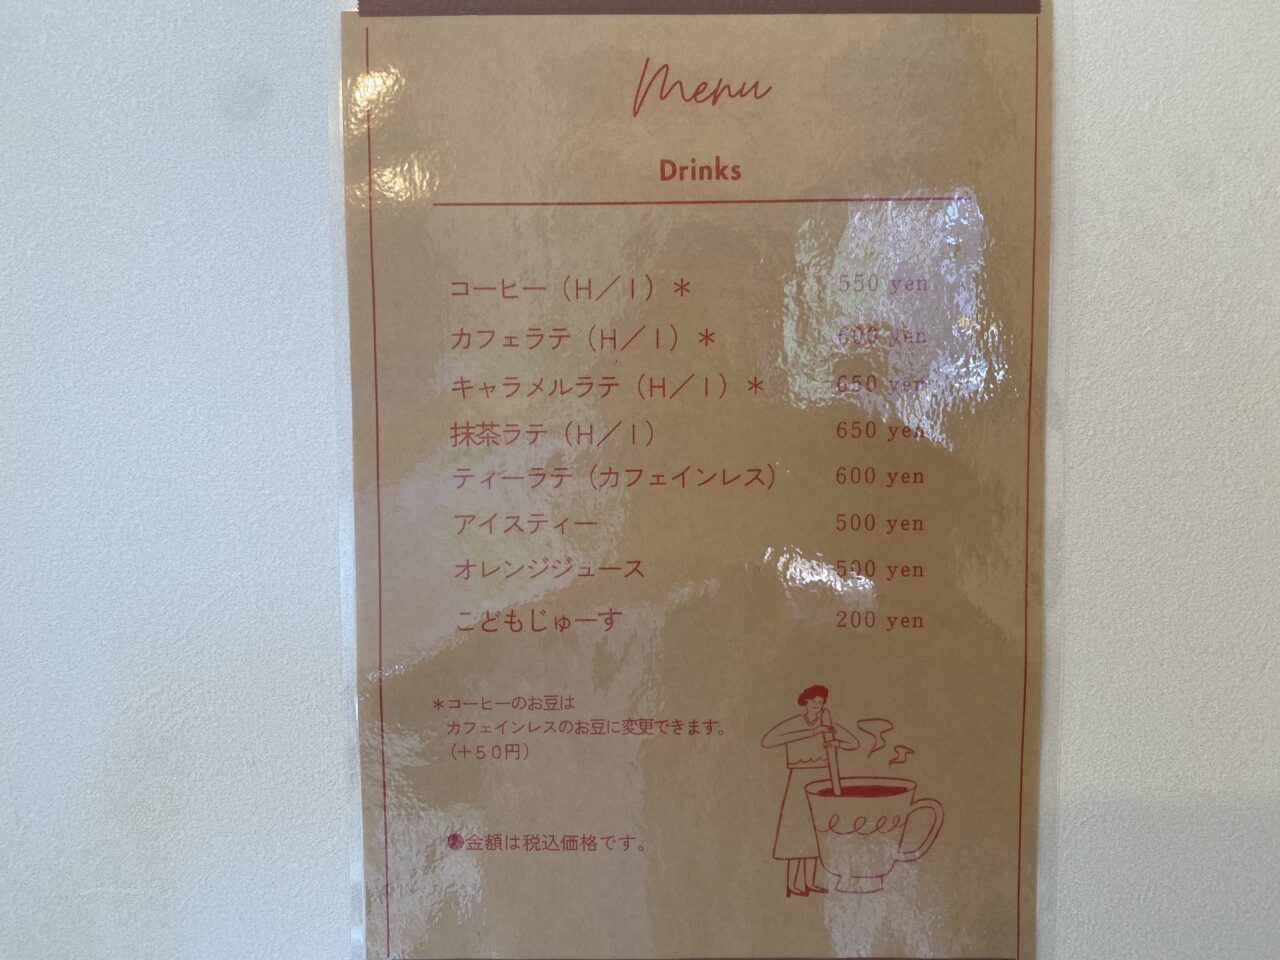 Menu
Drinks
コーヒー（H／I）＊ 550 yen
カフェラテ（H／I）＊ 600 yen
キャラメルラテ（H／I）＊ 650 yen
抹茶ラテ（H／I） 650 yen
ティーラテ（カフェインレス） 600 yen
アイスティー 500 yen
オレンジジュース 500 yen
こどもじゅーす 200 yen
＊コーヒーのお豆は
カフェインレスのお豆に変更できます。
（＋５０円）
●金額は税込価格です。